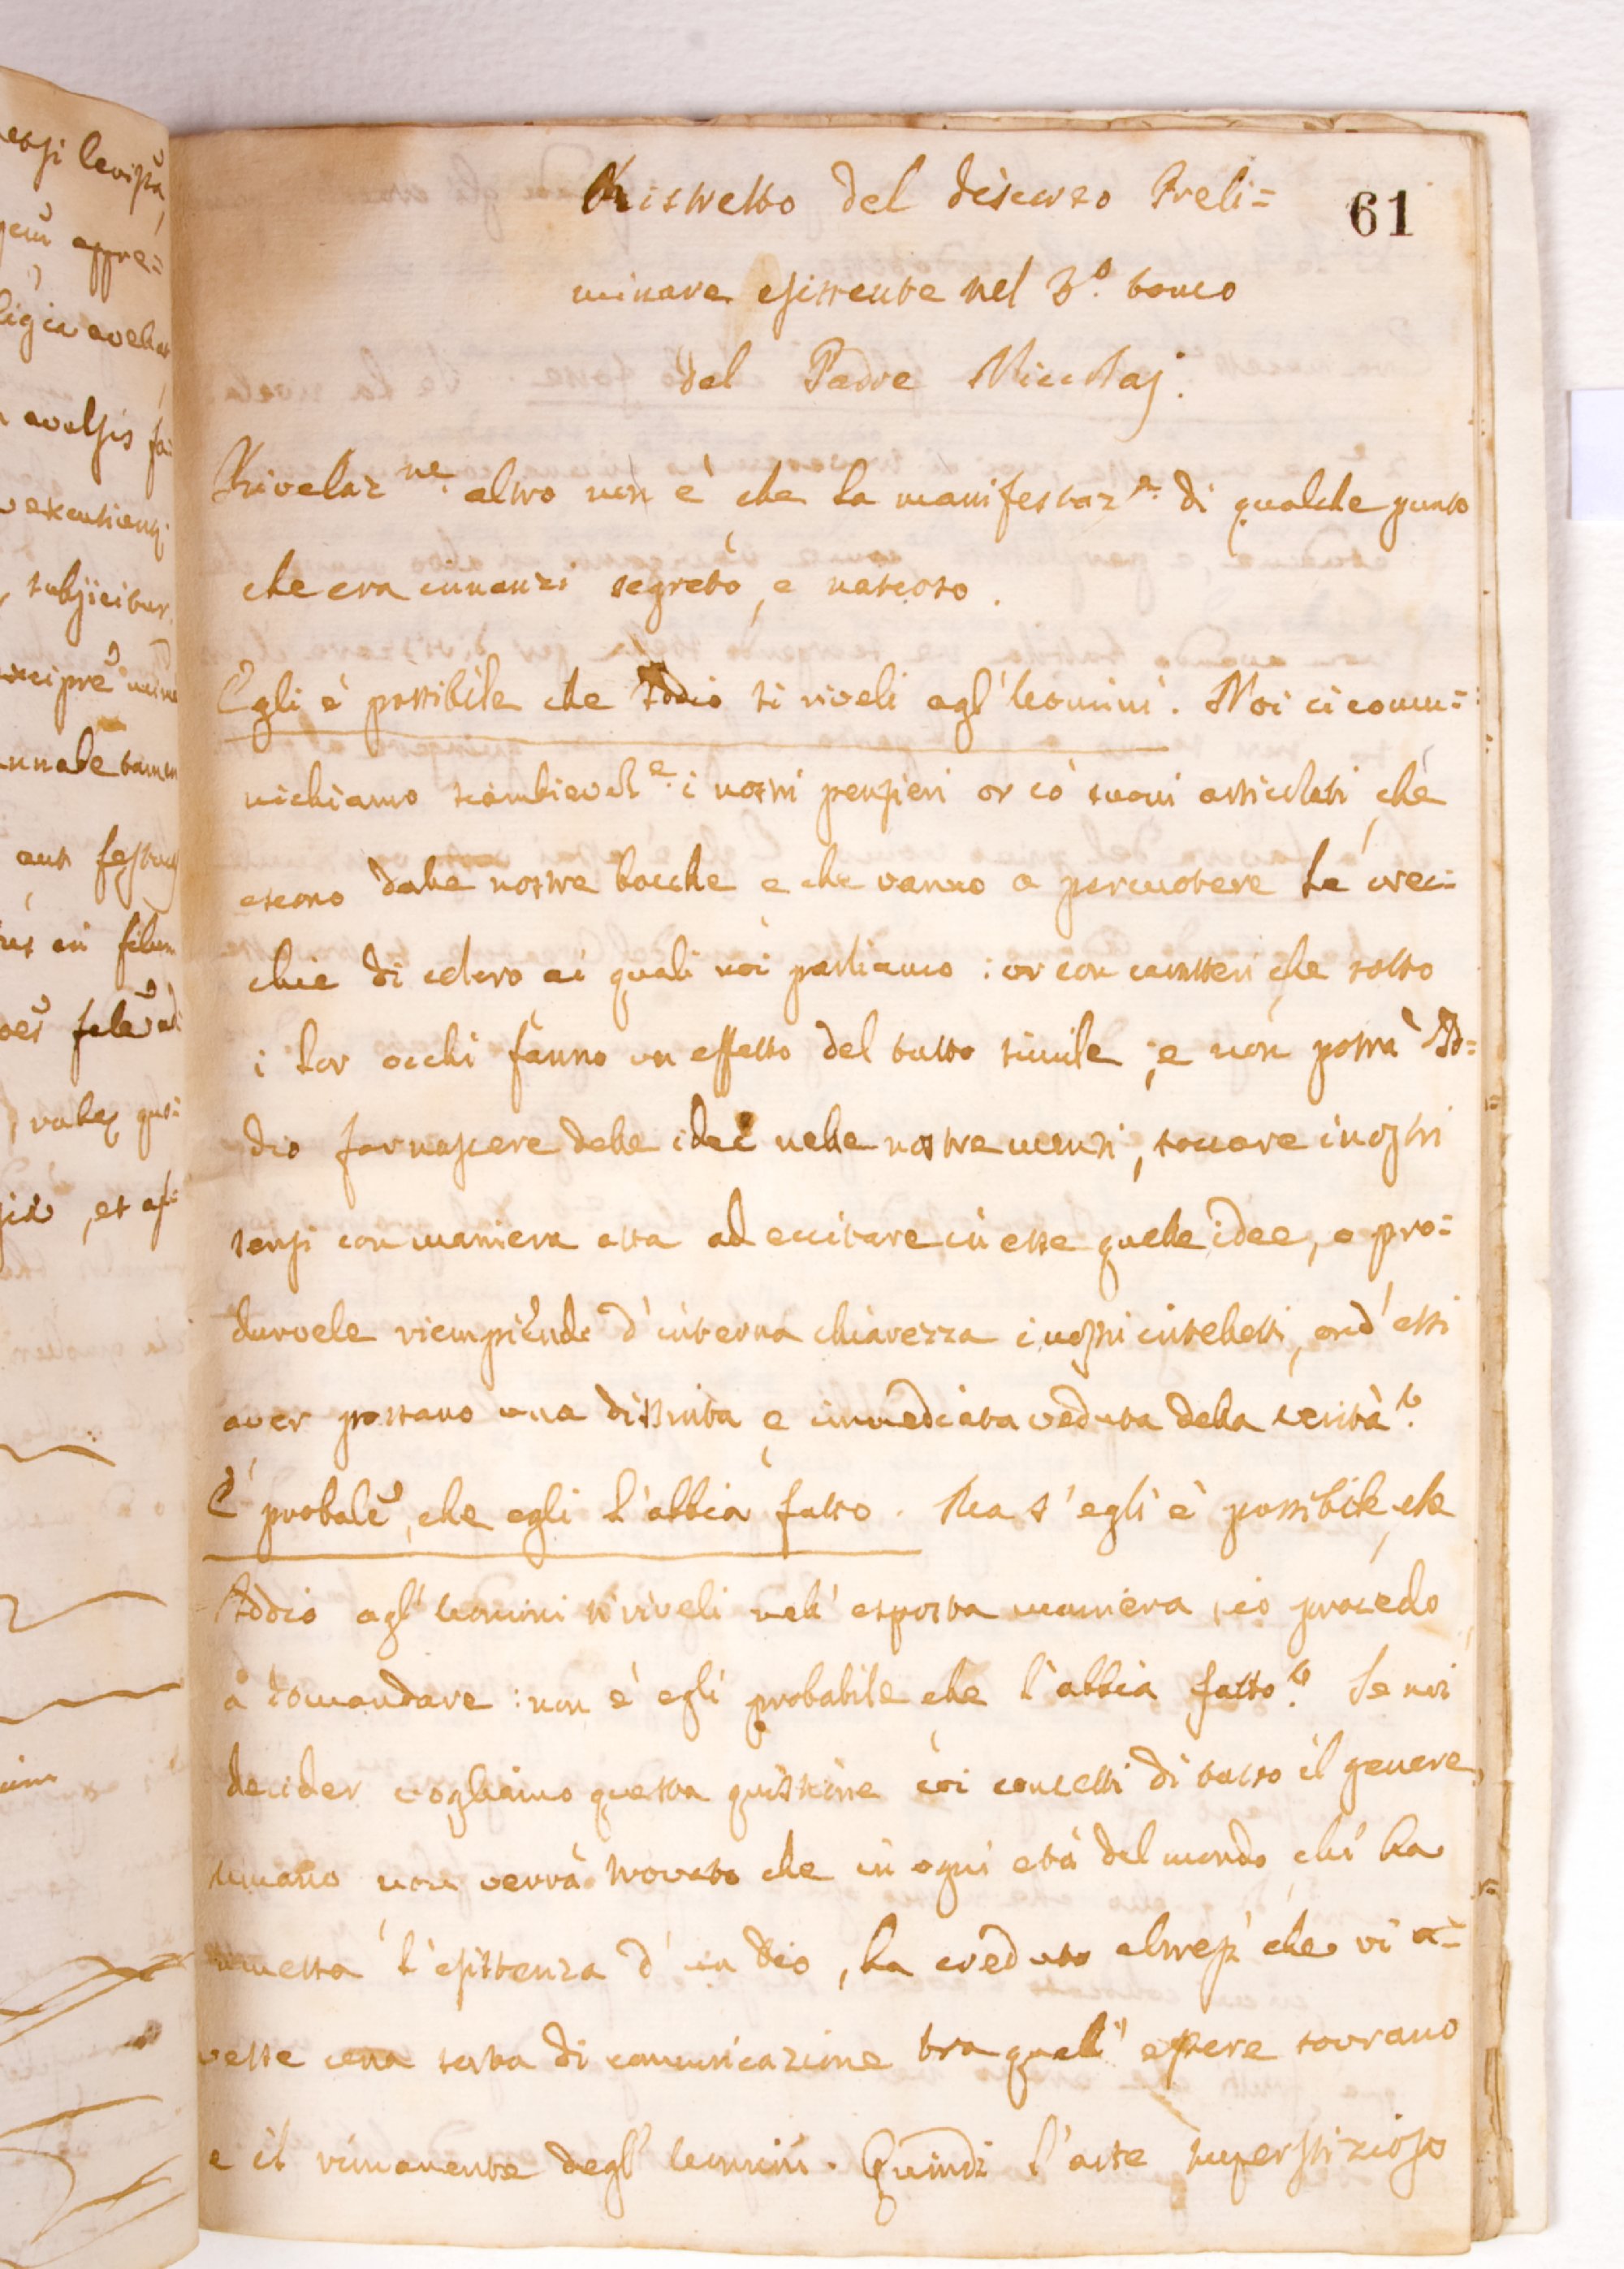 Ristretto del discorso Preli=
61
minare esistente nel 3.º tomo
del Padre Niccolaj.
Rivelaz.ne altro non è che la manifestaz.e di qualche punto
che era innanzi segreto, e nascoso.
Egli è possibile che Iddio si riveli agl'uomini. Noi ci comu=
nichiamo scambievol.e i nostri pensieri or cò suoni articolati, che
escono dalle nostre bocche e che vanno a percuotere le orec=
chie di coloro ai quali noi parliamo: or con caratteri che sotto
i lor occhi fanno un effetto del tutto simile; e non potrà Id=
dio far nascere delle idee nelle nostre menti, toccare i nostri
sensi con maniera atta ad eccitare in esse quelle idee, o pro=
durvele riempiendo d'interna chiarezza i nostri intelletti, ond'essi
aver possano una distinta e immediata veduta della verità?
È probalē, che egli l'abbia fatto. Ma s'egli è possibile, che
Iddio agl'uomini si riveli nell'esposta maniera, io procedo
a domandare: non è egli probabile che l'abbia fatto? Se noi
decider vogliamo questa quistione coi concetti di tutto il genere
umano non verrà trovato che in ogni età del mondo, chi ha
ammessa l'esistenza d'un Dio, ha creduto altresì che vi a=
vesse una sorta di comunicazione tra quell'essere sovrano
e il rimanente degl'uomini. Quindi l'arte superstiziosa
essi levissā
appre=
avelsis
subjicitur
tamen
aut festuc
in filum
, et